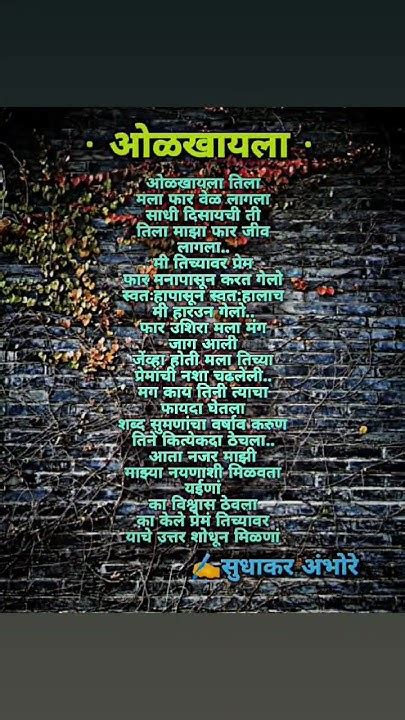 · ओळखायला ·
ओळखायला तिला
मला फार वेळ लागला
साधी दिसायची ती
तिला माझा फार जीव
लागला..
मी तिच्यावर प्रेम
फार मनापासून करत गेलो
स्वतःहापासून स्वतःहालाच
मी हारउन गेलो..
फार उशिरा मला मग
जाग आली
जेव्हा होती मला तिच्या
प्रेमाची नशा चढलेली..
मग काय तिनी त्याचा
फायदा घेतला
शब्द सुमणांचा वर्षाव करुण
तिने कित्येकदा ठेचला..
आता नजर माझी
माझ्या नयणाशी मिळवता
यईणां
का विश्वास ठेवला
का केले प्रेम तिच्यावर
याचे उत्तर शोधून मिळणा
✍सुधाकर अंभोरे